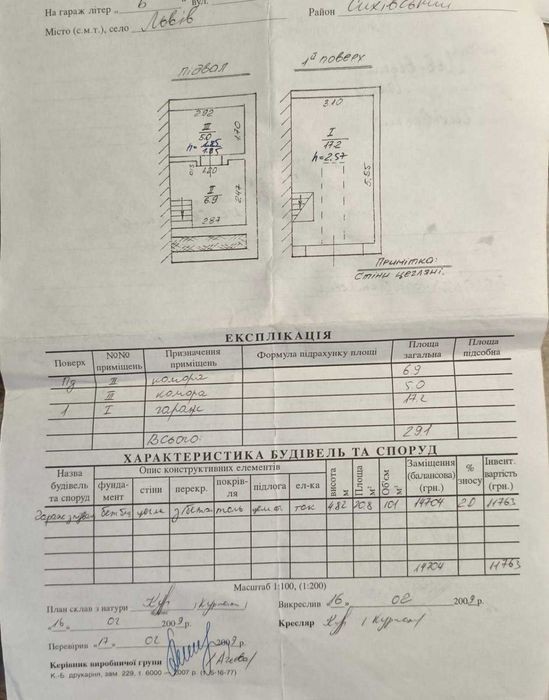 На гараж літер „ Б " вул.
Район Сихівський
Місто (с.м.т.), село Львів
підвал
1й поверх
2.92
III
5.0
h=2.85
1.85
1.70
0.5
1.20
II
6.9
2.47
2.87
3.10
I
17.2
h=2.57
5.55
Примітка:
Стіни цегляні.
ЕКСПЛІКАЦІЯ
Поверх №№ приміщень Призначення приміщень Формула підрахунку площі Площа загальна Площа підсобна
п/д II комора 6.9
III комора 5.0
1 I гараж 17.2
Всього: 29.1
ХАРАКТЕРИСТИКА БУДІВЕЛЬ ТА СПОРУД
Назва будівель та споруд Опис конструктивних елементів висота м Площа м² Об'єм м³ Заміщення (балансова) (грн.) % зносу Інвент. вартість (грн.)
фундамент стіни перекр. покрівля підлога ел-ка
Гараж з підвал бет бл цегл з/бетон толь цем ток 4.82 20.8 101 14704 20 11763
14704 11763
Масштаб 1:100, (1:200)
План склав з натури Викреслив „16 „ 02 2009 р.
„16 „ 02 2009 р. Кресляр
Перевірив „17 „ 02 2009 р.
Керівник виробничої групи
К.-Б. друкарня, зам. 229, т. 6000 — 2007 р. (1-5-16-77)